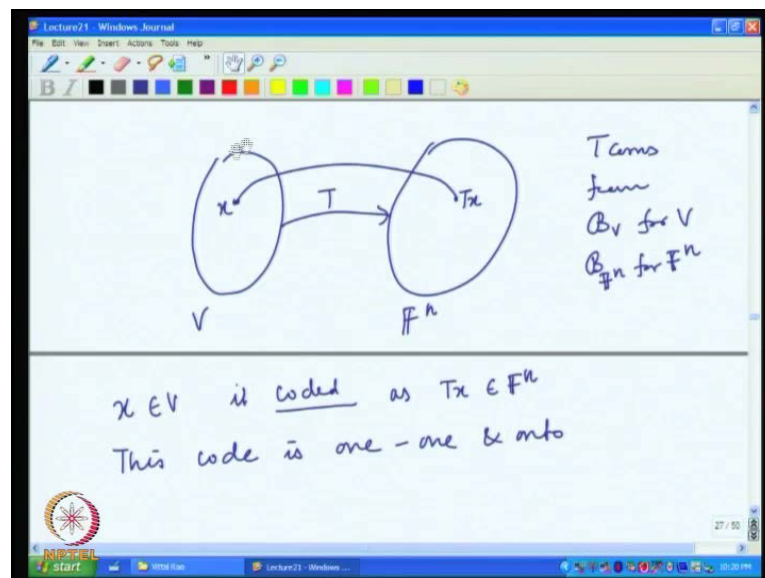 Lecture21 - Windows Journal
File Edit View Insert Actions Tools Help
B I
x T Tx
V F^n
T comes
from
B_V for V
B_F^n for F^n
x ∈ V is coded as Tx ∈ F^n
This code is one-one & onto
27 / 50
NPTEL
start Vittal Rao Lecture21 - Windows ... 10:20 PM